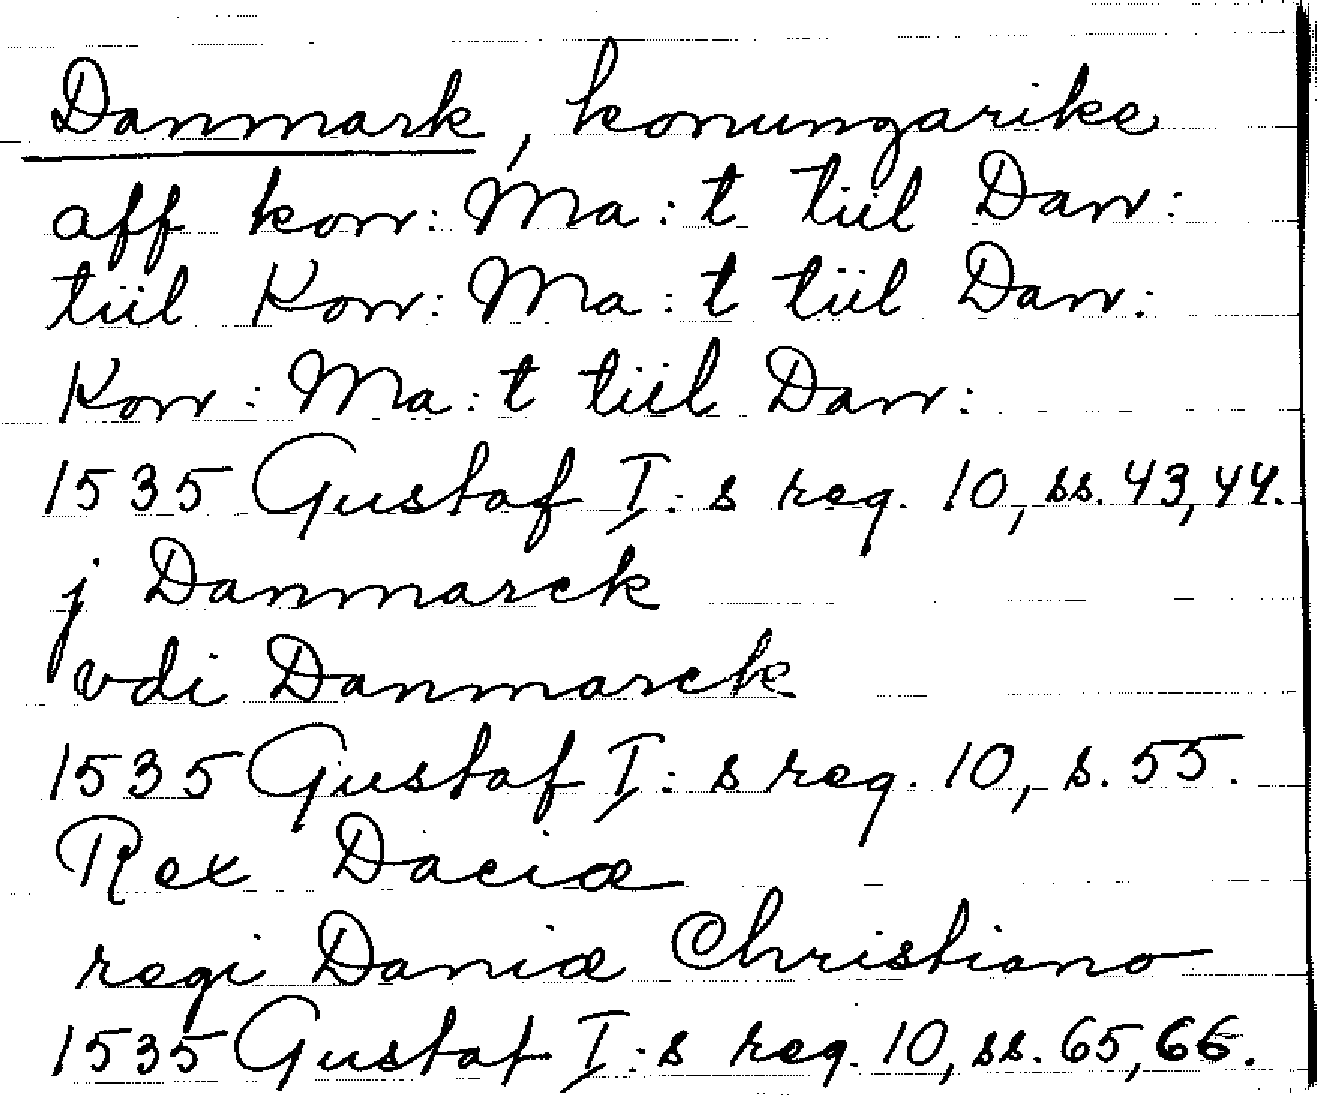 Danmark, konungarike
aff konn: Ma:t tiil Dann:
tiil Konn: Ma:t tiil Dann:
Konn: Ma:t tiil Dann:
1535 Gustaf I:s reg. 10, ss. 43,44.
j Danmarck
vdi Danmarck
1535 Gustaf I:s reg. 10, s. 55.
Rex Daciæ
regi Daniæ Christiano
1535 Gustaf I:s reg. 10, ss. 65,66.